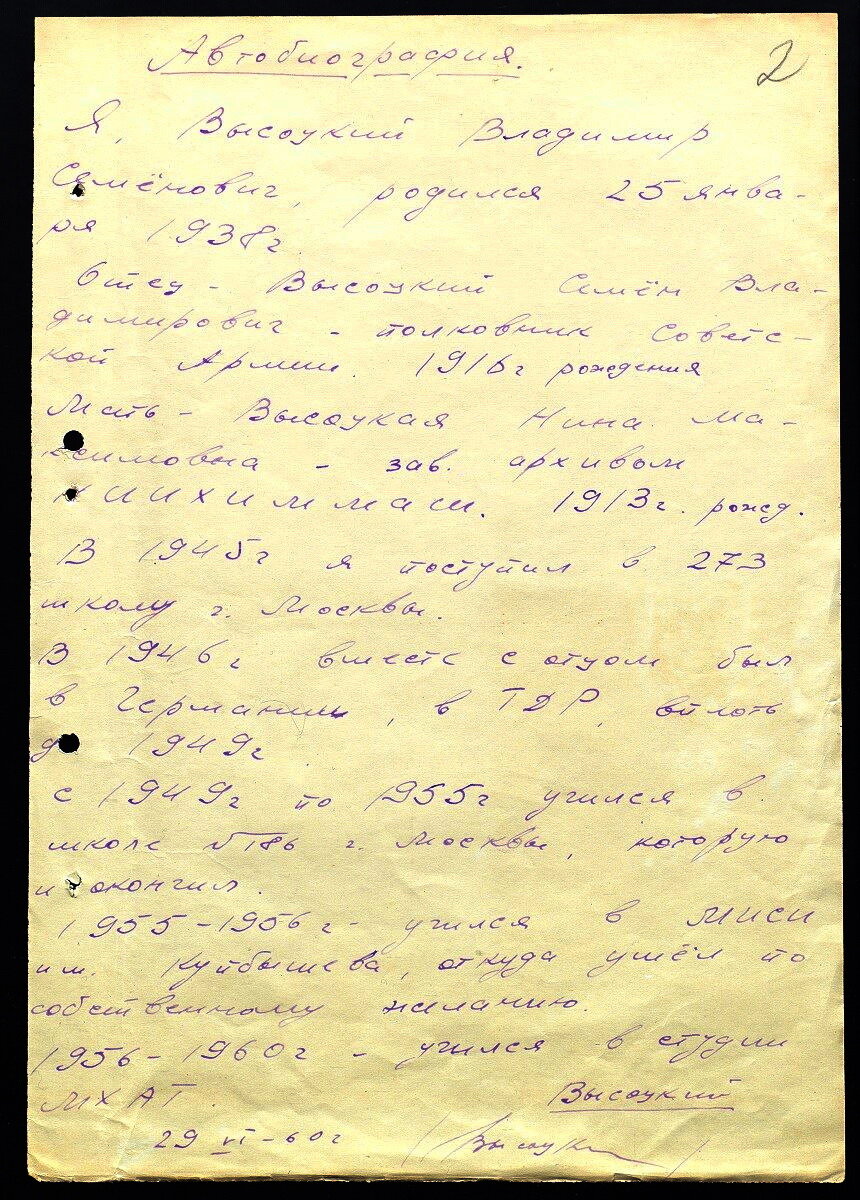 Автобиография.
2
Я, Высоцкий Владимир
Семёнович, родился 25 янва-
ря 1938г.
Отец - Высоцкий Семён Вла-
димирович - полковник Советс-
кой Армии. 1916г рождения
Мать - Высоцкая Нина Ма-
ксимовна - зав. архивом
НИИХИММАШ. 1913г. рожд.
В 1945г я поступил в 273
школу г. Москвы.
В 1946г вместе с отцом был
в Германии, в ГДР, вплоть
до 1949г
с 1949г по 1955г учился в
школе №186 г. Москвы, которую
и окончил.
1955-1956г - учился в МИСИ
им. Куйбышева, откуда ушёл по
собственному желанию.
1956-1960г - учился в студии
МХАТ.
Высоцкий
29 VI-60г
/Высоцкий/